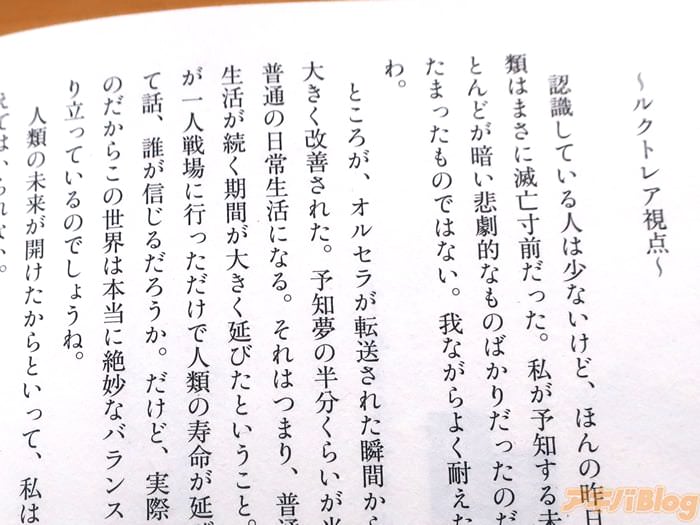 ～ルクトレア視点～
認識している人は少ないけど、ほんの昨日
類はまさに滅亡寸前だった。私が予知する未
とんどが暗い悲劇的なものばかりだったのだ
たまったものではない。我ながらよく耐えた
わ。
ところが、オルセラが転送された瞬間から
大きく改善された。予知夢の半分くらいが
普通の日常生活になる。それはつまり、普通
生活が続く期間が大きく延びたということ。
が一人戦場に行っただけで人類の寿命が延び
て話、誰が信じるだろうか。だけど、実際
のだからこの世界は本当に絶妙なバランス
り立っているのでしょうね。
人類の未来が開けたからといって、私は
アキバBlog